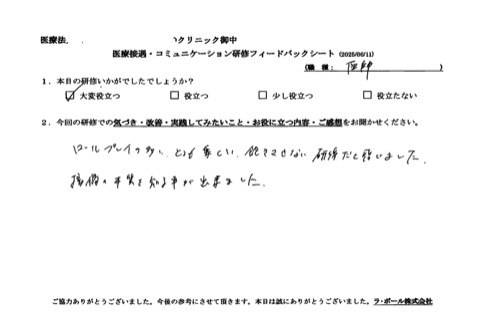 医療法 クリニック御中
医療接遇・コミュニケーション研修フィードバックシート (2025/06/11)
(職 種: 医師 )
1.本日の研修いかがでしたでしょうか?
大変役立つ 役立つ 少し役立つ 役立たない
2.今回の研修での気づき・改善・実践してみたいこと・お役に立つ内容・ご感想をお聞かせください。
ロールプレイが多い、とても楽しい、飽きさせない研修だと思いました。
接遇の本質を知る事が出来ました。
ご協力ありがとうございました。今後の参考にさせて頂きます。本日は誠にありがとうございました。ラ・ポール株式会社